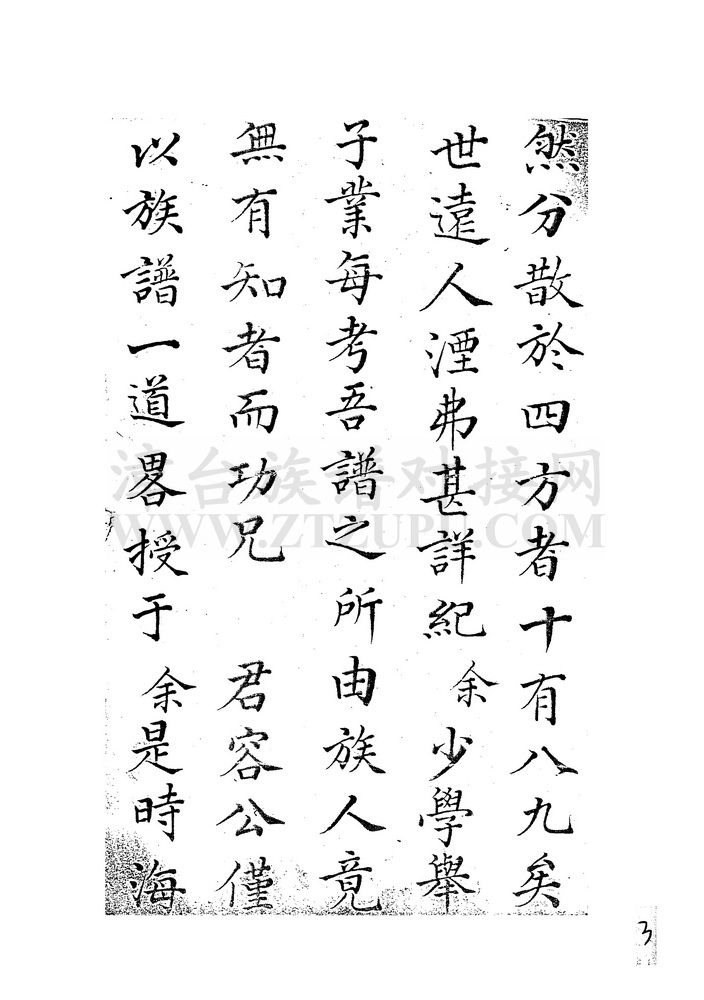 然分散於四方者十有八九矣
世遠人湮弗甚詳紀 余少學舉
子業每考吾譜之所由族人竟
無有知者而功兄 君容公僅
以族譜一道畧授于 余是時海
滨台族谱对接网
WWW.ZTZUPU.COM
3